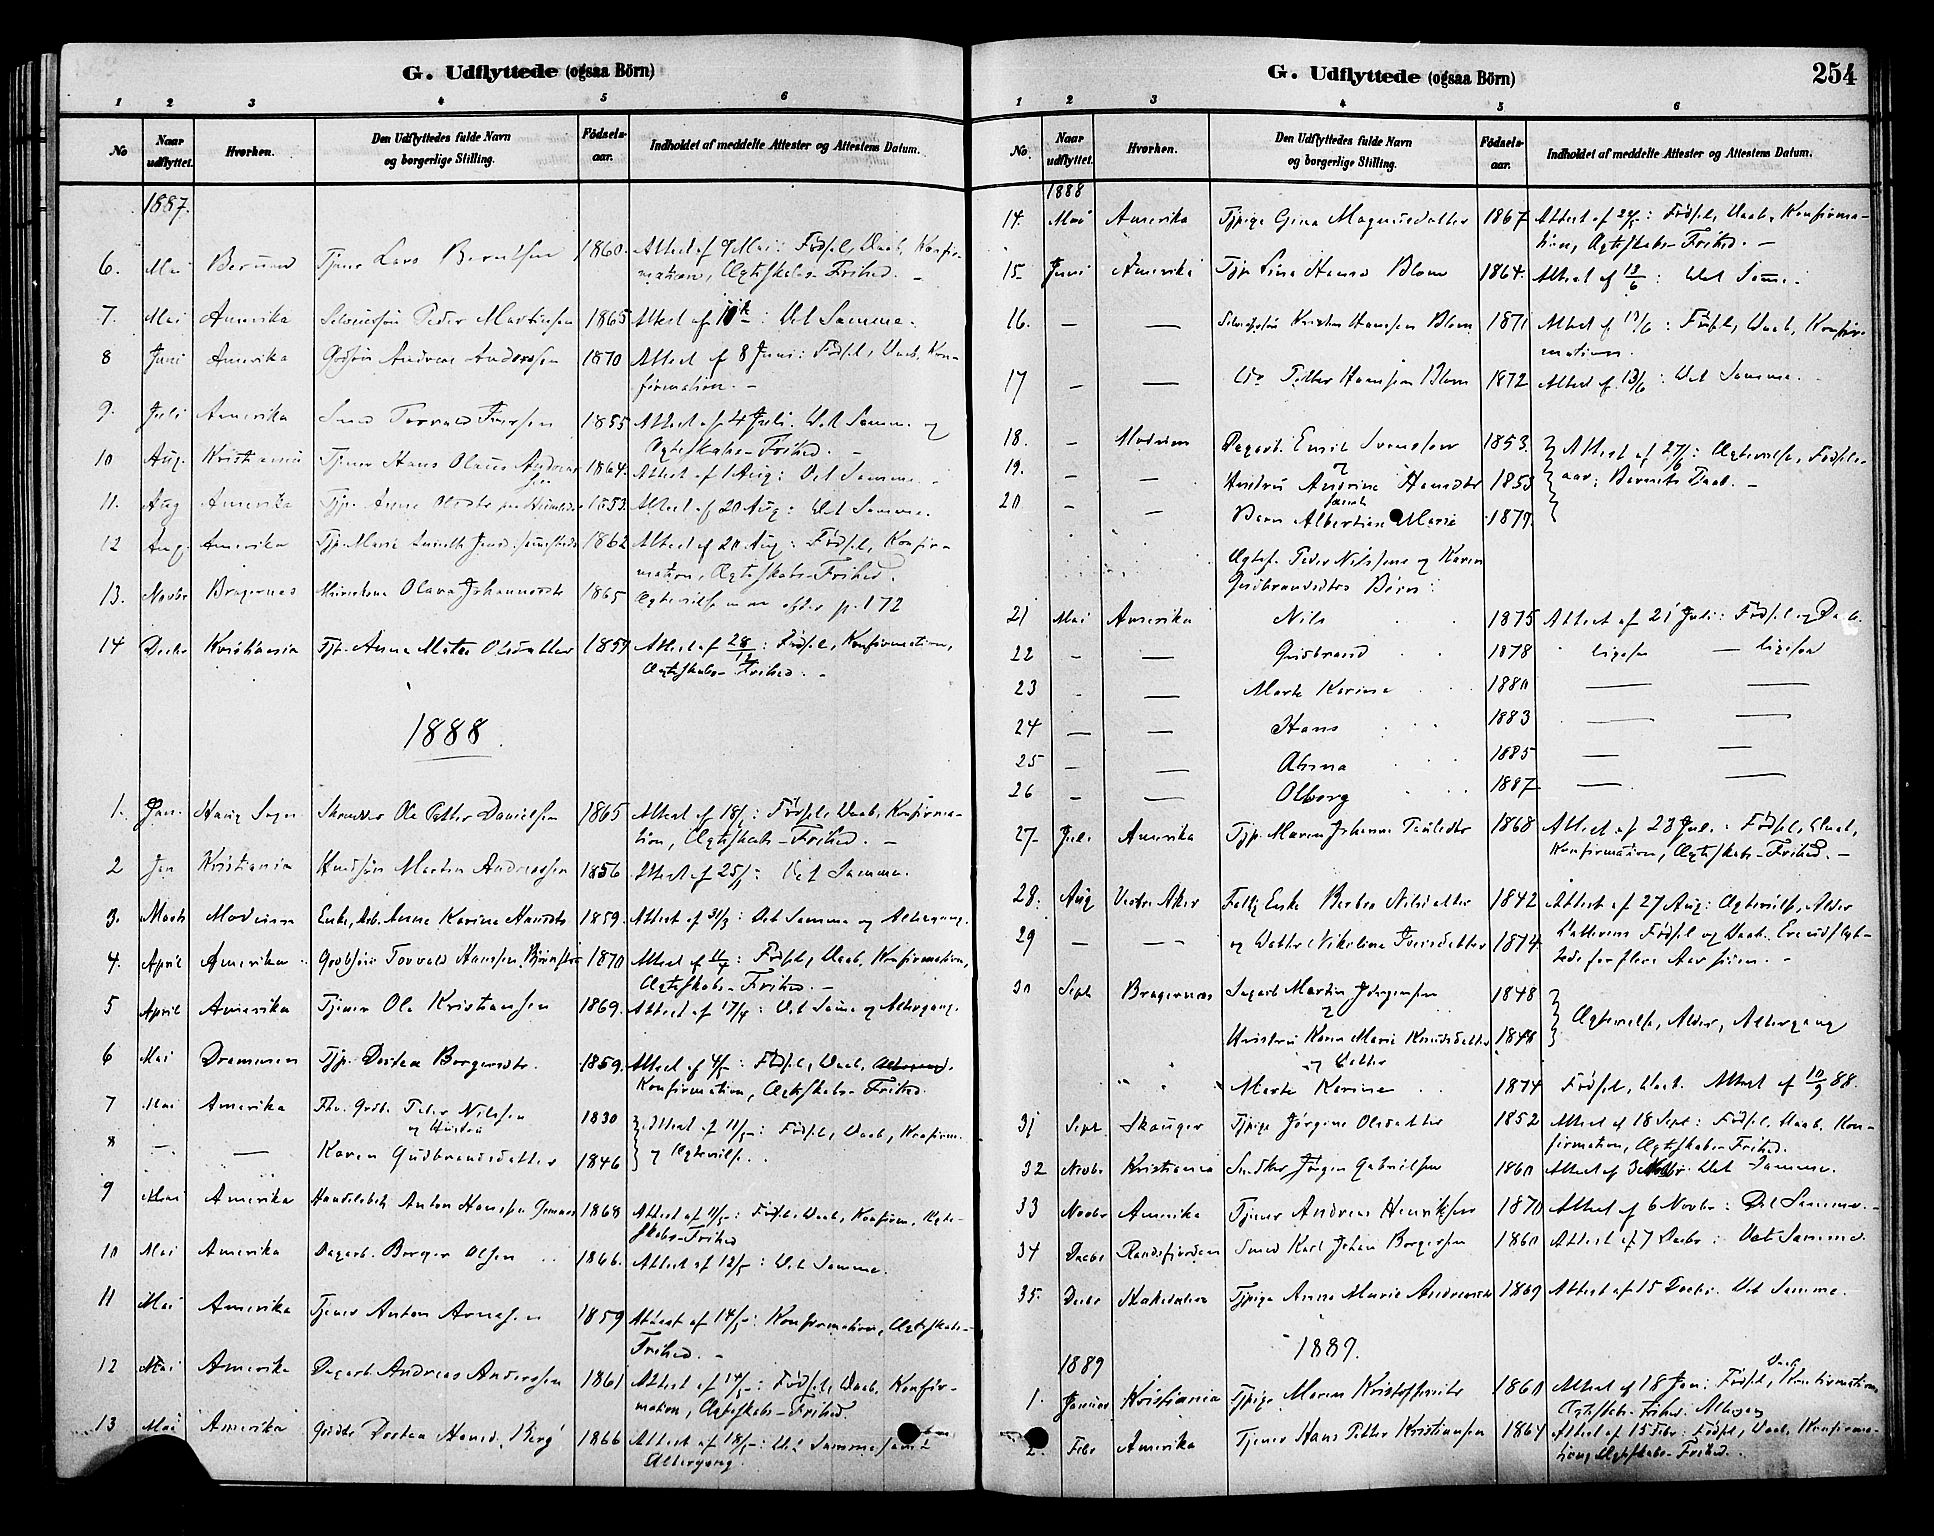 G. Udflyttede (ogsaa Börn)
1 2 3 4 5 6
No Naar udflyttet. Hvorhen. Den Udflyttedes fulde Navn og borgerlige Stilling. Födsels-aar. Indholdet af meddelte Attester og Attestens Datum.
1887.
6. Mai Berum Tjener Lars Berntsen 1860. Attest af 9 Mai: Fødsel, Daab, Konfir-
mation, Ægteskabs-Frihed. —
7. Mai Amerika Peder Martinsen 1865 Attest af : Det Samme.
8 Juni Amerika Andreas Anderssen 1870 Attest af 8 Juni: Fødsel, Daab, Kon-
firmation. —
9. Juli Amerika Smed Torvald Iversen 1855 Attest af 4 Juli. Det Samme og
Ægteskabs-Frihed. —
10 Aug. Kristiania Tjener Hans Olaus Andreas 1864. Attest af 1 Aug: Det Samme. -
sen
11. Aug Amerika Tjp. Anne 1853. Attest af 20 Aug: Det Samme.
12 Aug. Amerika Tjp. Marie 1862 Attest af 20 Aug: Fødsel, Konfir-
mation, Ægteskabs-Frihed.
13. Novbr Bragernes Olava Johannesdtr 1865 Ægtevielse p. 172
14 Decbr Kristiania Tjp. Anna Mathea Olsdatter 1859 Attest af 28/12: Fødsel, Konfirmation,
Ægteskabs-Frihed. -
1888.
1. Jan. Haug Sogn Skrædder Ole Petter Danielsen 1865 Attest af 18/1: Fødsel, Daab, Konfirma-
tion, Ægteskabs-Frihed. —
2 Jan Kristiania Martin Andreassen 1856 Attest af 25/1: Det Samme.
3. Marts Modum Enke, Arb. Anne Karine Hansdtr 1859. Attest af 21/3: Det Samme og Altergang.
4. April Amerika Torvald Hanssen 1870 Attest af 11/4: Fødsel, Daab, Konfirmation,
Ægteskabs-Frihed. —
5 April Amerika Tjener Ole Kristiansen 1869. Attest af 17/4: Det Samme og Altergang.
6 Mai Drammen Tjp. Dortea Borgersdtr. 1859. Attest af 4/5: Fødsel, Daab, Altergang.
Konfirmation, Ægteskabs-Frihed.
7 Mai Amerika Peder Nilssen 1830 Attest af 11/5: Fødsel, Daab, Konfirm.
og Hustru
8 — — Karen Gudbrandsdatter 1846 og Ægtevielse.
9 Mai Amerika Handelsbetj. Anton Hanssen 1868 Attest af 11/5: Fødsel, Daab, Konfirm, Ægte-
skabs-Frihed
10 Mai Amerika Dagarb. Borger Olsen 1866. Attest af 12/5: Det Samme.
11 Mai Amerika Tjener Anton Arnesen 1859 Attest af 14/5: Konfirmation, Ægteskabs-
Frihed. -
12 Mai Amerika Dagarb. Andreas Anderssen 1861 Attest af 14/5: Fødsel, Daab, Konfir-
mation, Ægteskabs-Frihed.
13 Mai Amerika Dortea Hansd. Berg 1866 Attest af 18/5: Det Samme samt
Altergang.
G. Udflyttede (ogsaa Börn) 254
1 2 3 4 5 6
No. Naar udflyttet. Hvorhen. Den Udflyttedes fulde Navn og borgerlige Stilling. Födsels-aar. Indholdet af meddelte Attester og Attestens Datum.
1888
14. Mai Amerika Tjpige Gina Magnusdatter 1867 Attest af 24/5: Fødsel, Daab, Konfirma-
tion, Ægteskabs-Frihed. —
15. Juni Amerika Tjp. Lina Hansd Blom 1864. Attest af 13/6: Det Samme.
16. — — Kristian Hanssen Blom 1871 Attest af 13/6: Fødsel, Daab, Konfir-
mation.
17 — — Do Petter Hanssen Blom 1872 Attest af 13/6: Det Samme.
18. — Modum Dagarb. Emil Svendsen 1853. Attest af 27/6: Ægtevielse, Fødsels-
og
19. - — Hustru Andrine Hansdtr 1853 aar; Barnets Daab. —
samt
20 - — Barn Albertine Marie 1879.
Ægtef. Peder Nilssens og Karen
Gudbrandsdtrs Børn:
21 Mai Amerika Nils 1875 Attest af 21 Juli: Fødsel og Daab.
22 — — Gudbrand 1878 ligesaa — ligesaa
23 - — Marte Karine 1880 — —
24 — — Hans 1883 — —
25 — — Anna 1885 — —
26 — — Olborg 1887 — —
27 Juli Amerika Tjp. Maren Johanne Paulsdtr 1868 Attest af 23 Juli: Fødsel, Daab,
Konfirmation, Ægteskabs-Frihed. —
28. Aug Vestre Aker Enke Berthe Nilsdatter 1842 Attest af 27 Aug: Ægtevielse, Alder
29 — — og Datter Nikoline Iversdatter 1874 Datterens Fødsel og Daab. Ere udflyt-
tede for flere Aar siden. -
30 Sept Bragernes Dagarb Martin Jørgensen 1848 Ægtevielse, Alder, Altergang
og
Hustru Karen Marie Knudsdatter 1848
og Datter
" " " Marte Karine 1874 Fødsel, Daab. Attest af 10/9 88.
31 Sept. Skouger Tjpige Jørgine Olsdatter 1852 Attest af 18 Sept: Fødsel, Daab, Kon-
firmation, Ægteskabs-Frihed.
32 Novbr Kristiania Jørgen Gabrielsen 1860 Attest af 3 Novbr: Det Samme.
33 Novbr Amerika Tjener Andreas Henriksen 1870 Attest af 6 Novbr: Det Samme. -
34 Decbr Randsfjorden Smed Karl Johan Borgersen 1860 Attest af 7 Decbr: Det Samme.
35. Decbr Tjpige Anne Marie Andreasdtr 1869 Attest af 15 Decbr. Det Samme.
1889.
1889
1. Januar Kristiania Tjpige Maren Kristoffersdtr 1860 Attest af 18 Jan: Fødsel, Daab, Konfirmation
Ægteskabs-Frihed. Altergang
2. Febr Amerika Tjener Hans Petter Kristiansen 1864 Attest af 15 Febr: Fødsel, Daab, Konfirma-
tion, Ægteskabs-Frihed.